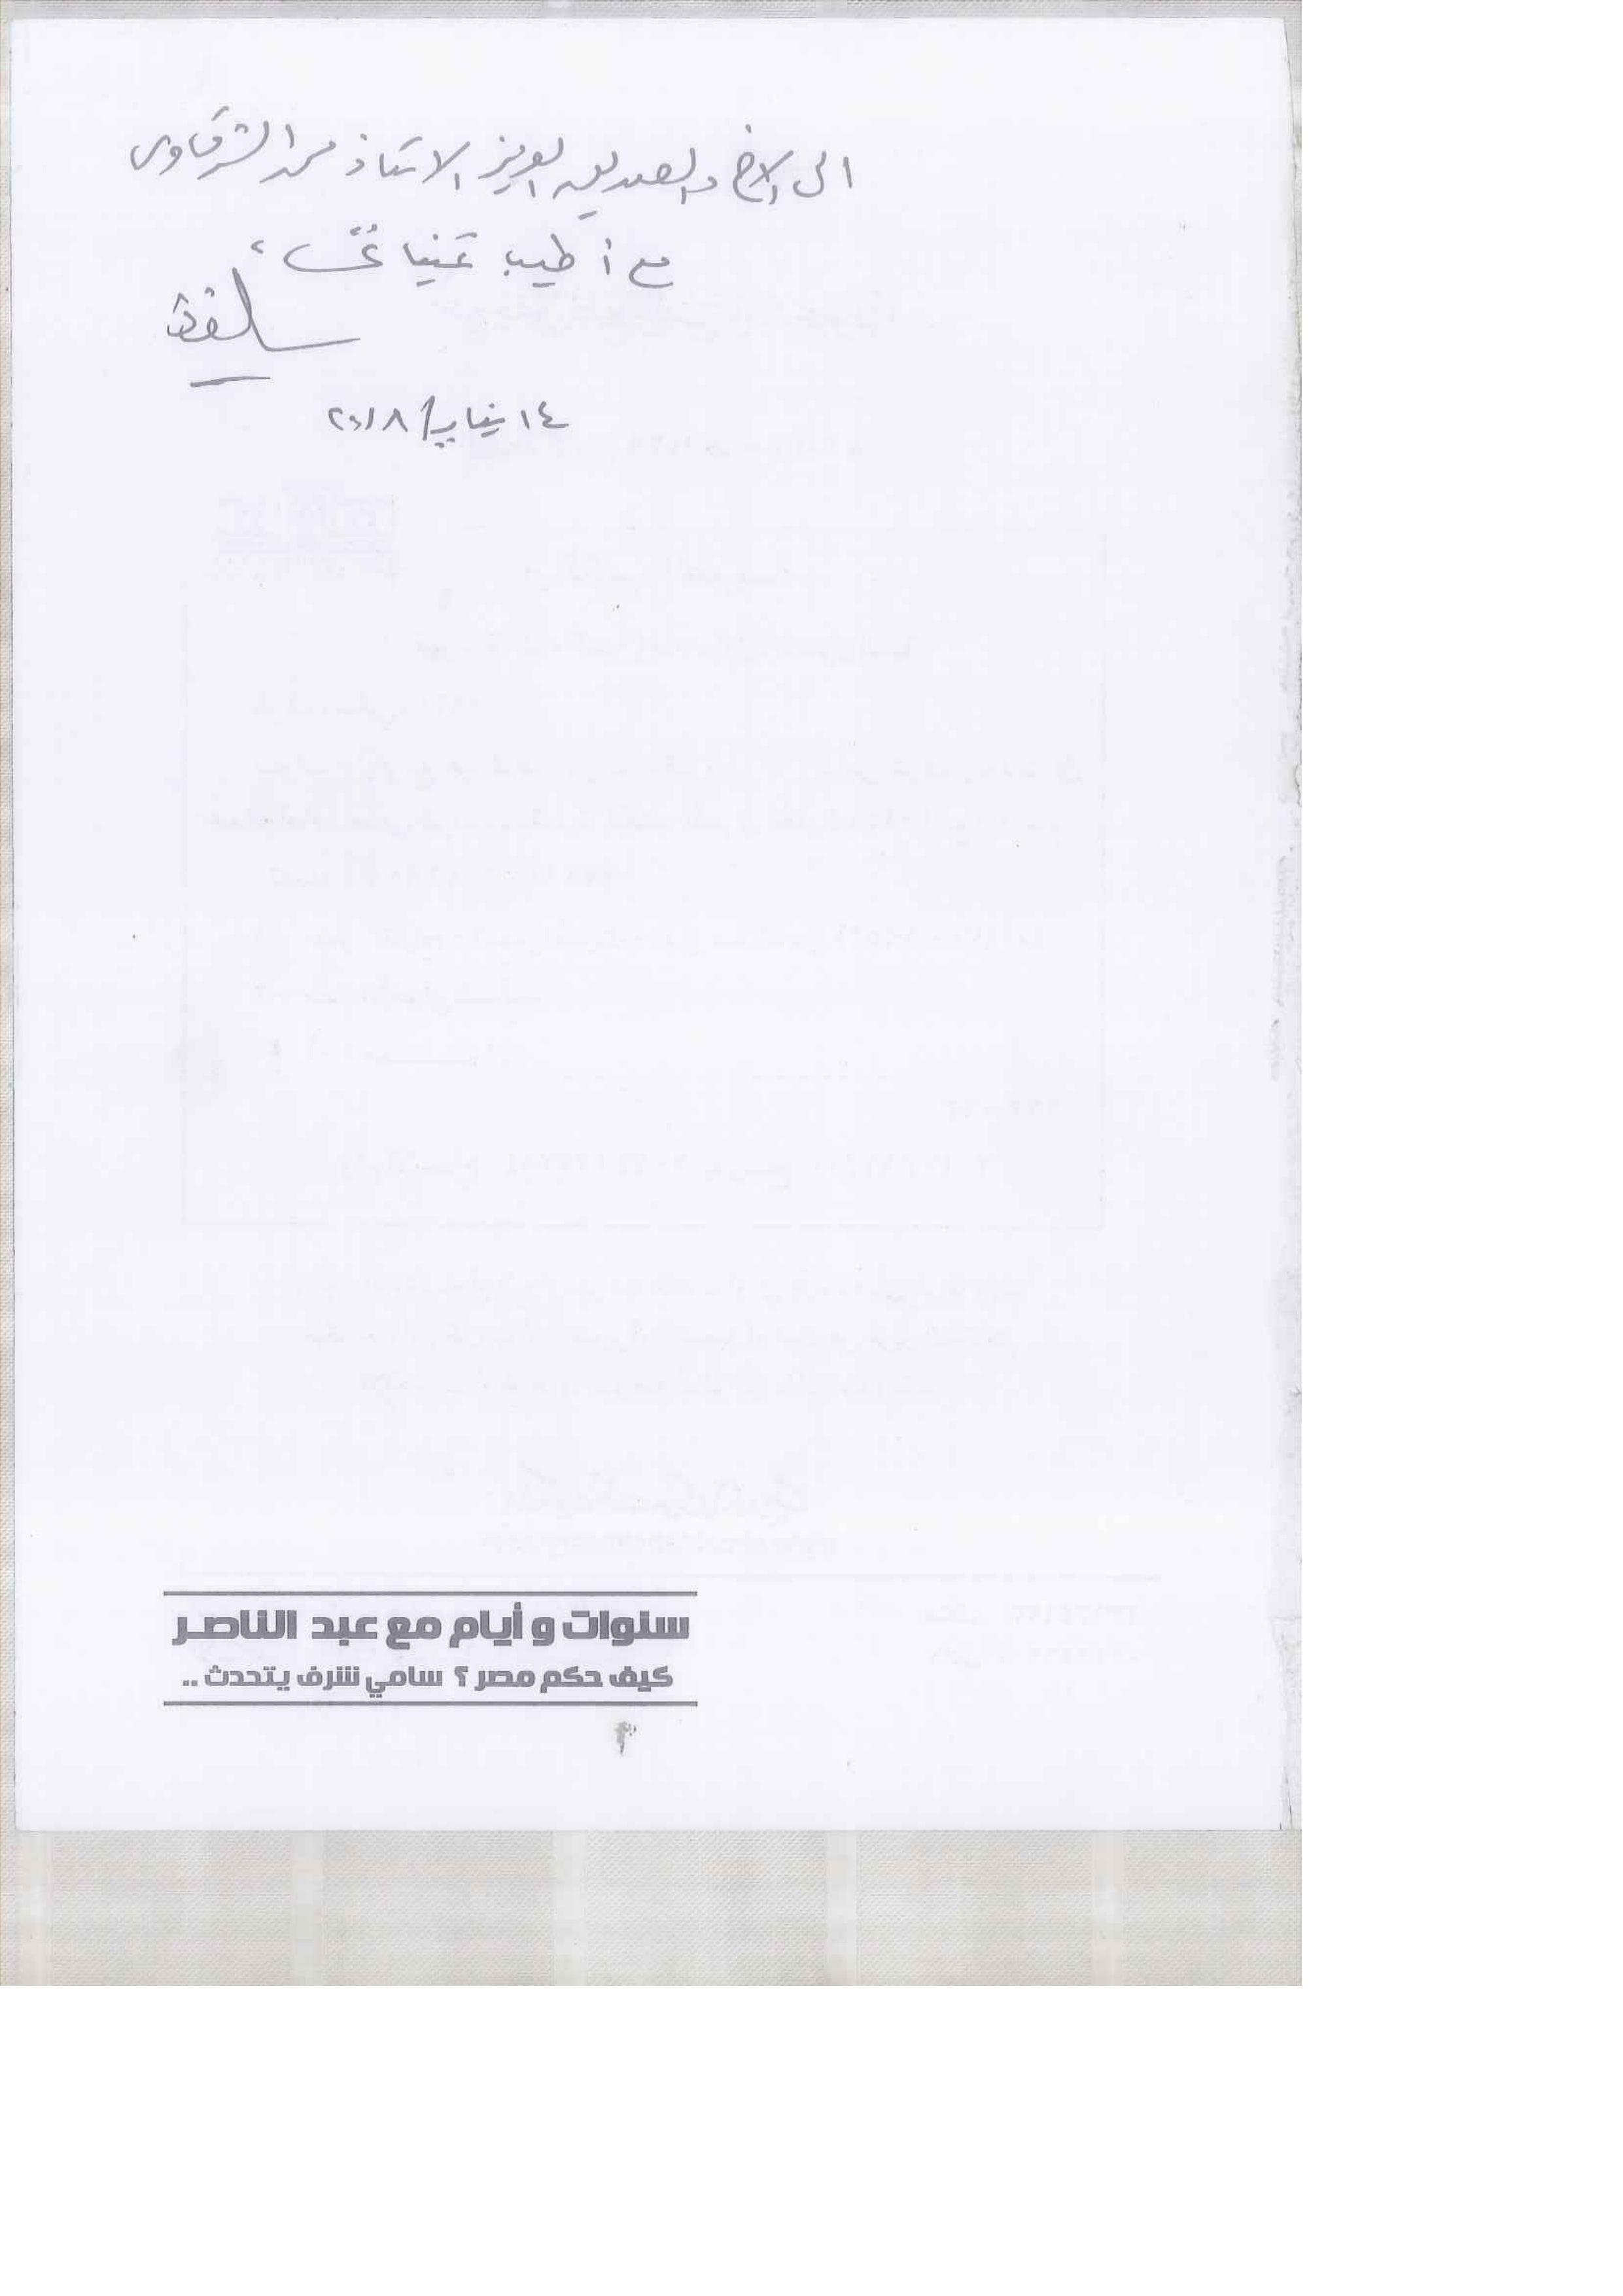 الى الاخ والصديق العزيز الاستاذ محمد الشرقاوى
مع أطيب تمنياتى ،
١٤ يناير / ٢٠١٨
سنوات و أيام مع عبد الناصر
كيف حكم مصر ؟ سامي شرف يتحدث ..